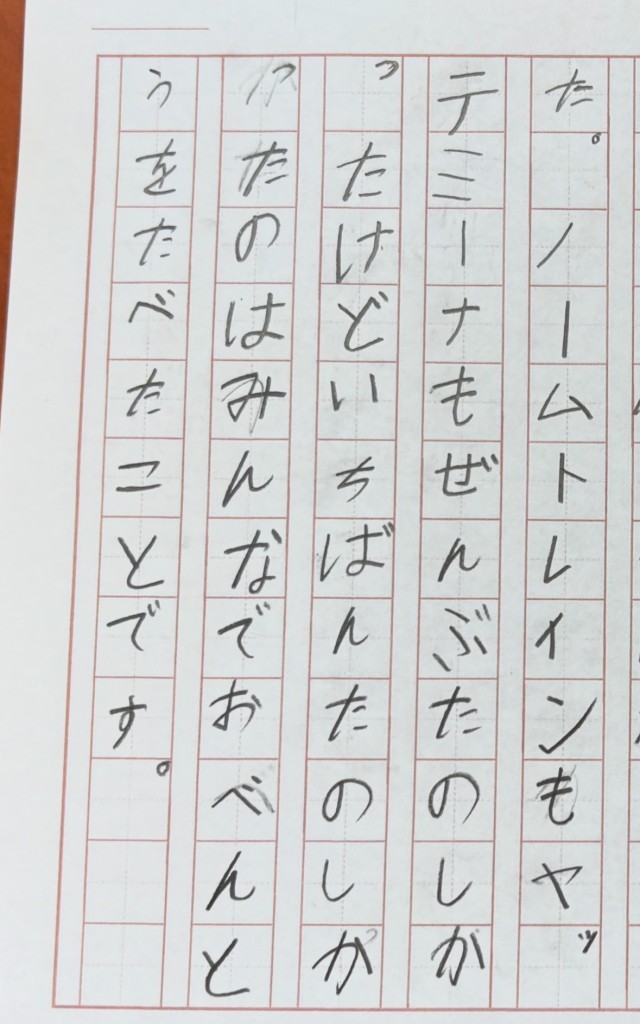 た。ノームトレインもヤッ
テミーナもぜんぶたのしか
ったけどいちばんたのしか
ったのはみんなでおべんと
うをたべたことです。